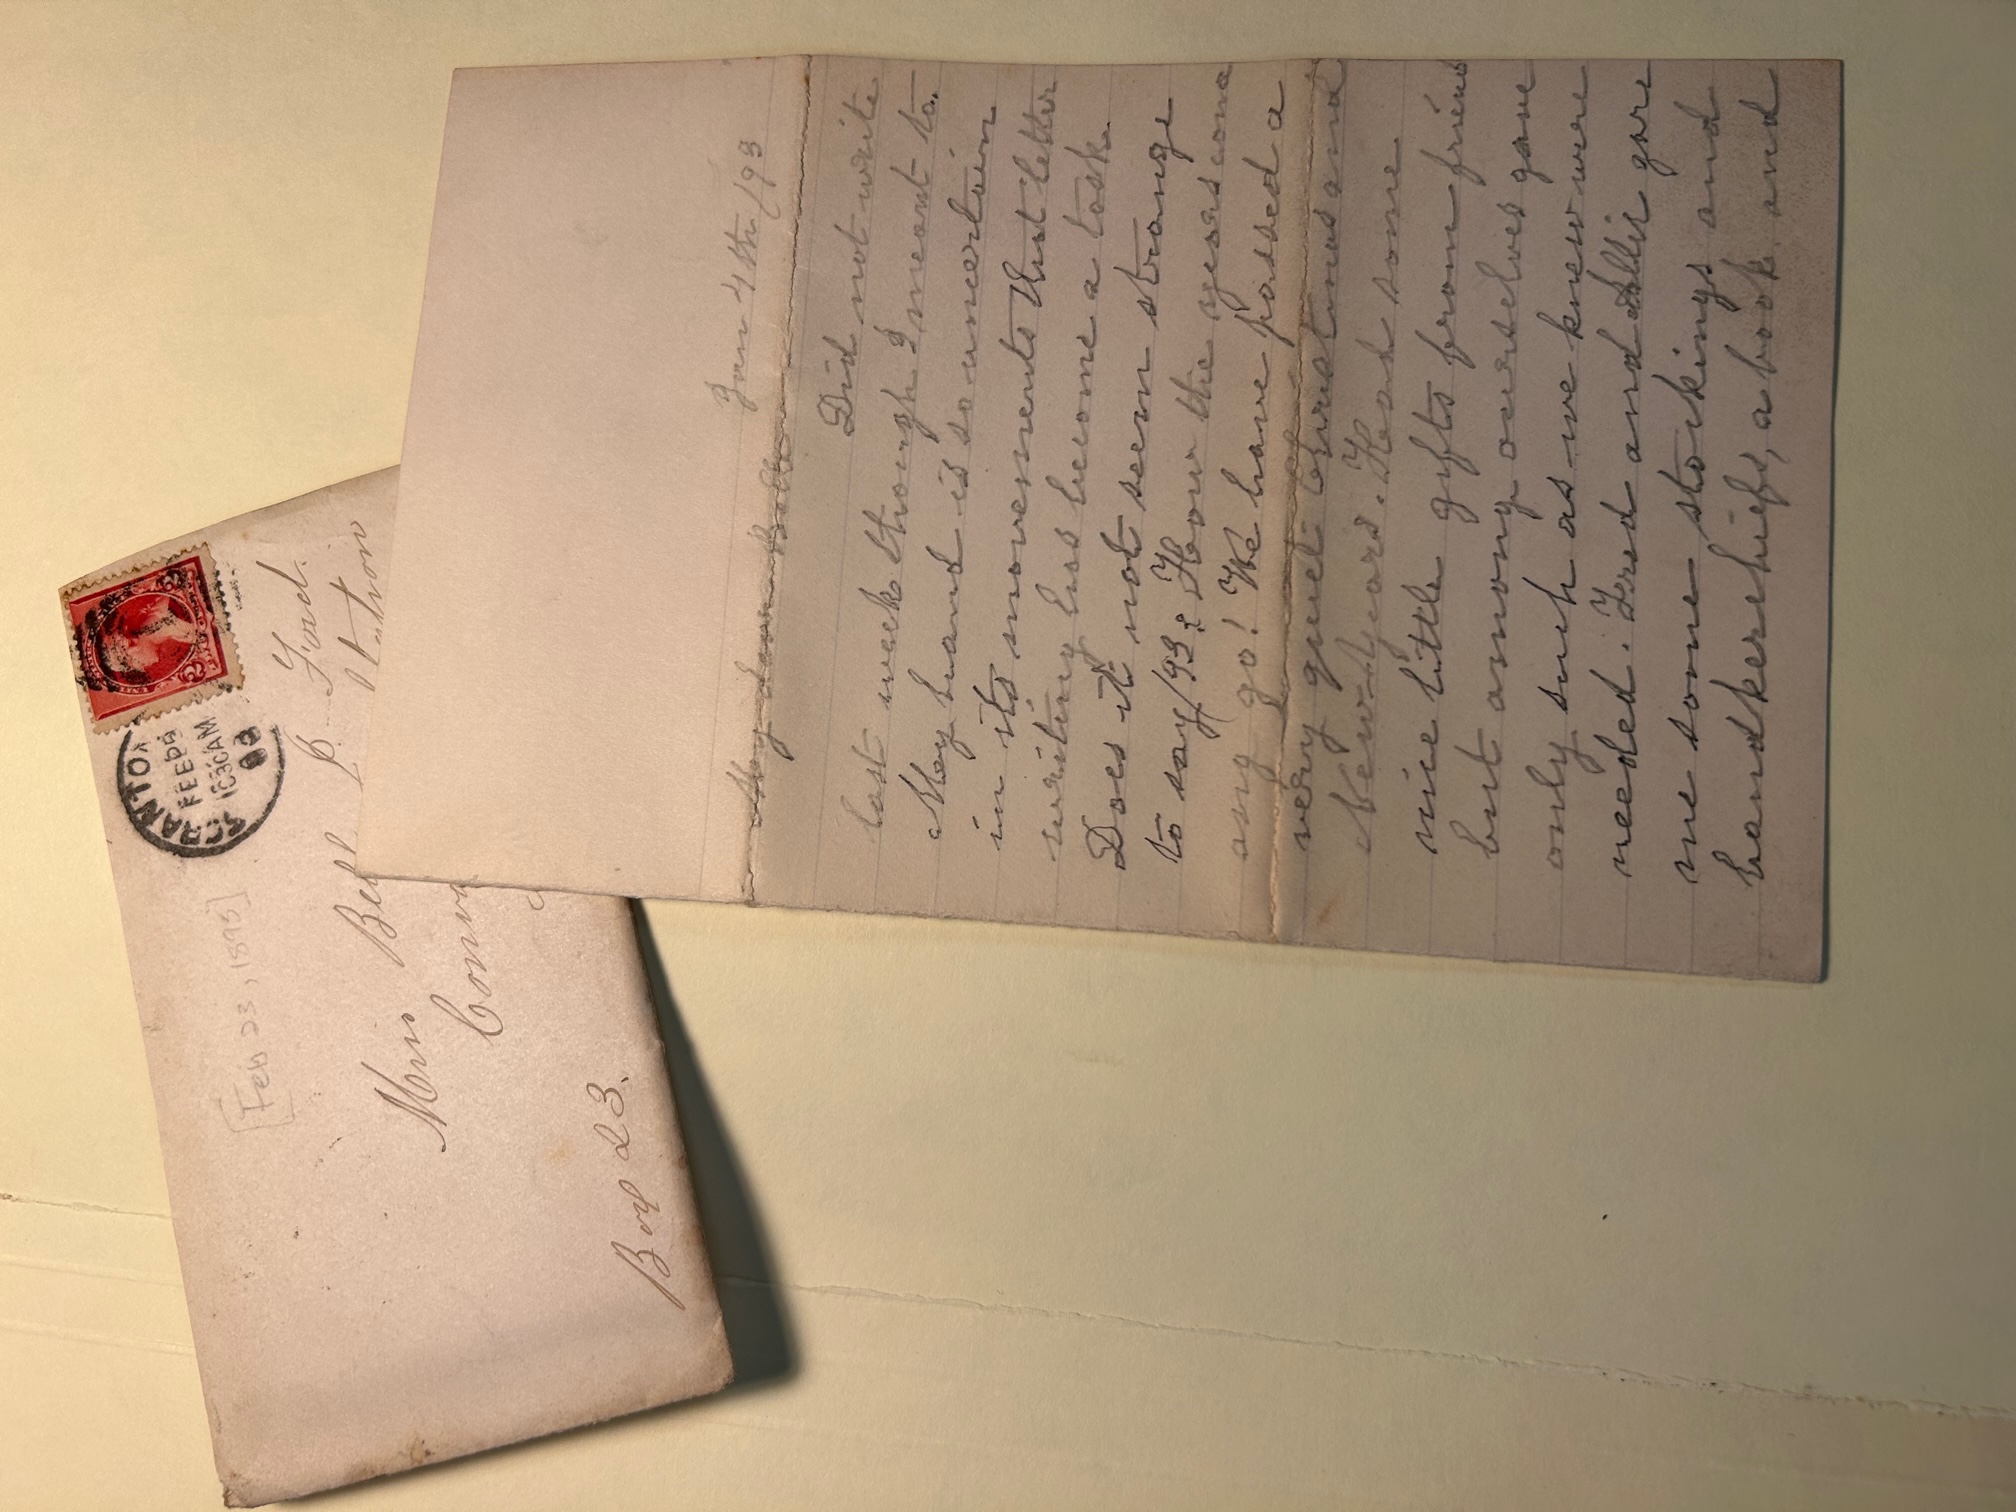 SCRANTON
FEB
1030AM
[Feb 23, 1893]
Miss Bell B. Ford.
Box 23.
Jan 4th /93
My dear Belle
Did not write
last week though I meant to.
My hand is so uncertain
in its movements that letter
writing has become a task.
Does it not seem strange
to say /93? How the years come
any go! We have passed a
very quiet Christmas and
New Years. Had some
nice little gifts from friend
but among ourselves gave
only such as we knew were
needed. Fred and Allie gave
me some stockings and
handkerchiefs, a book and